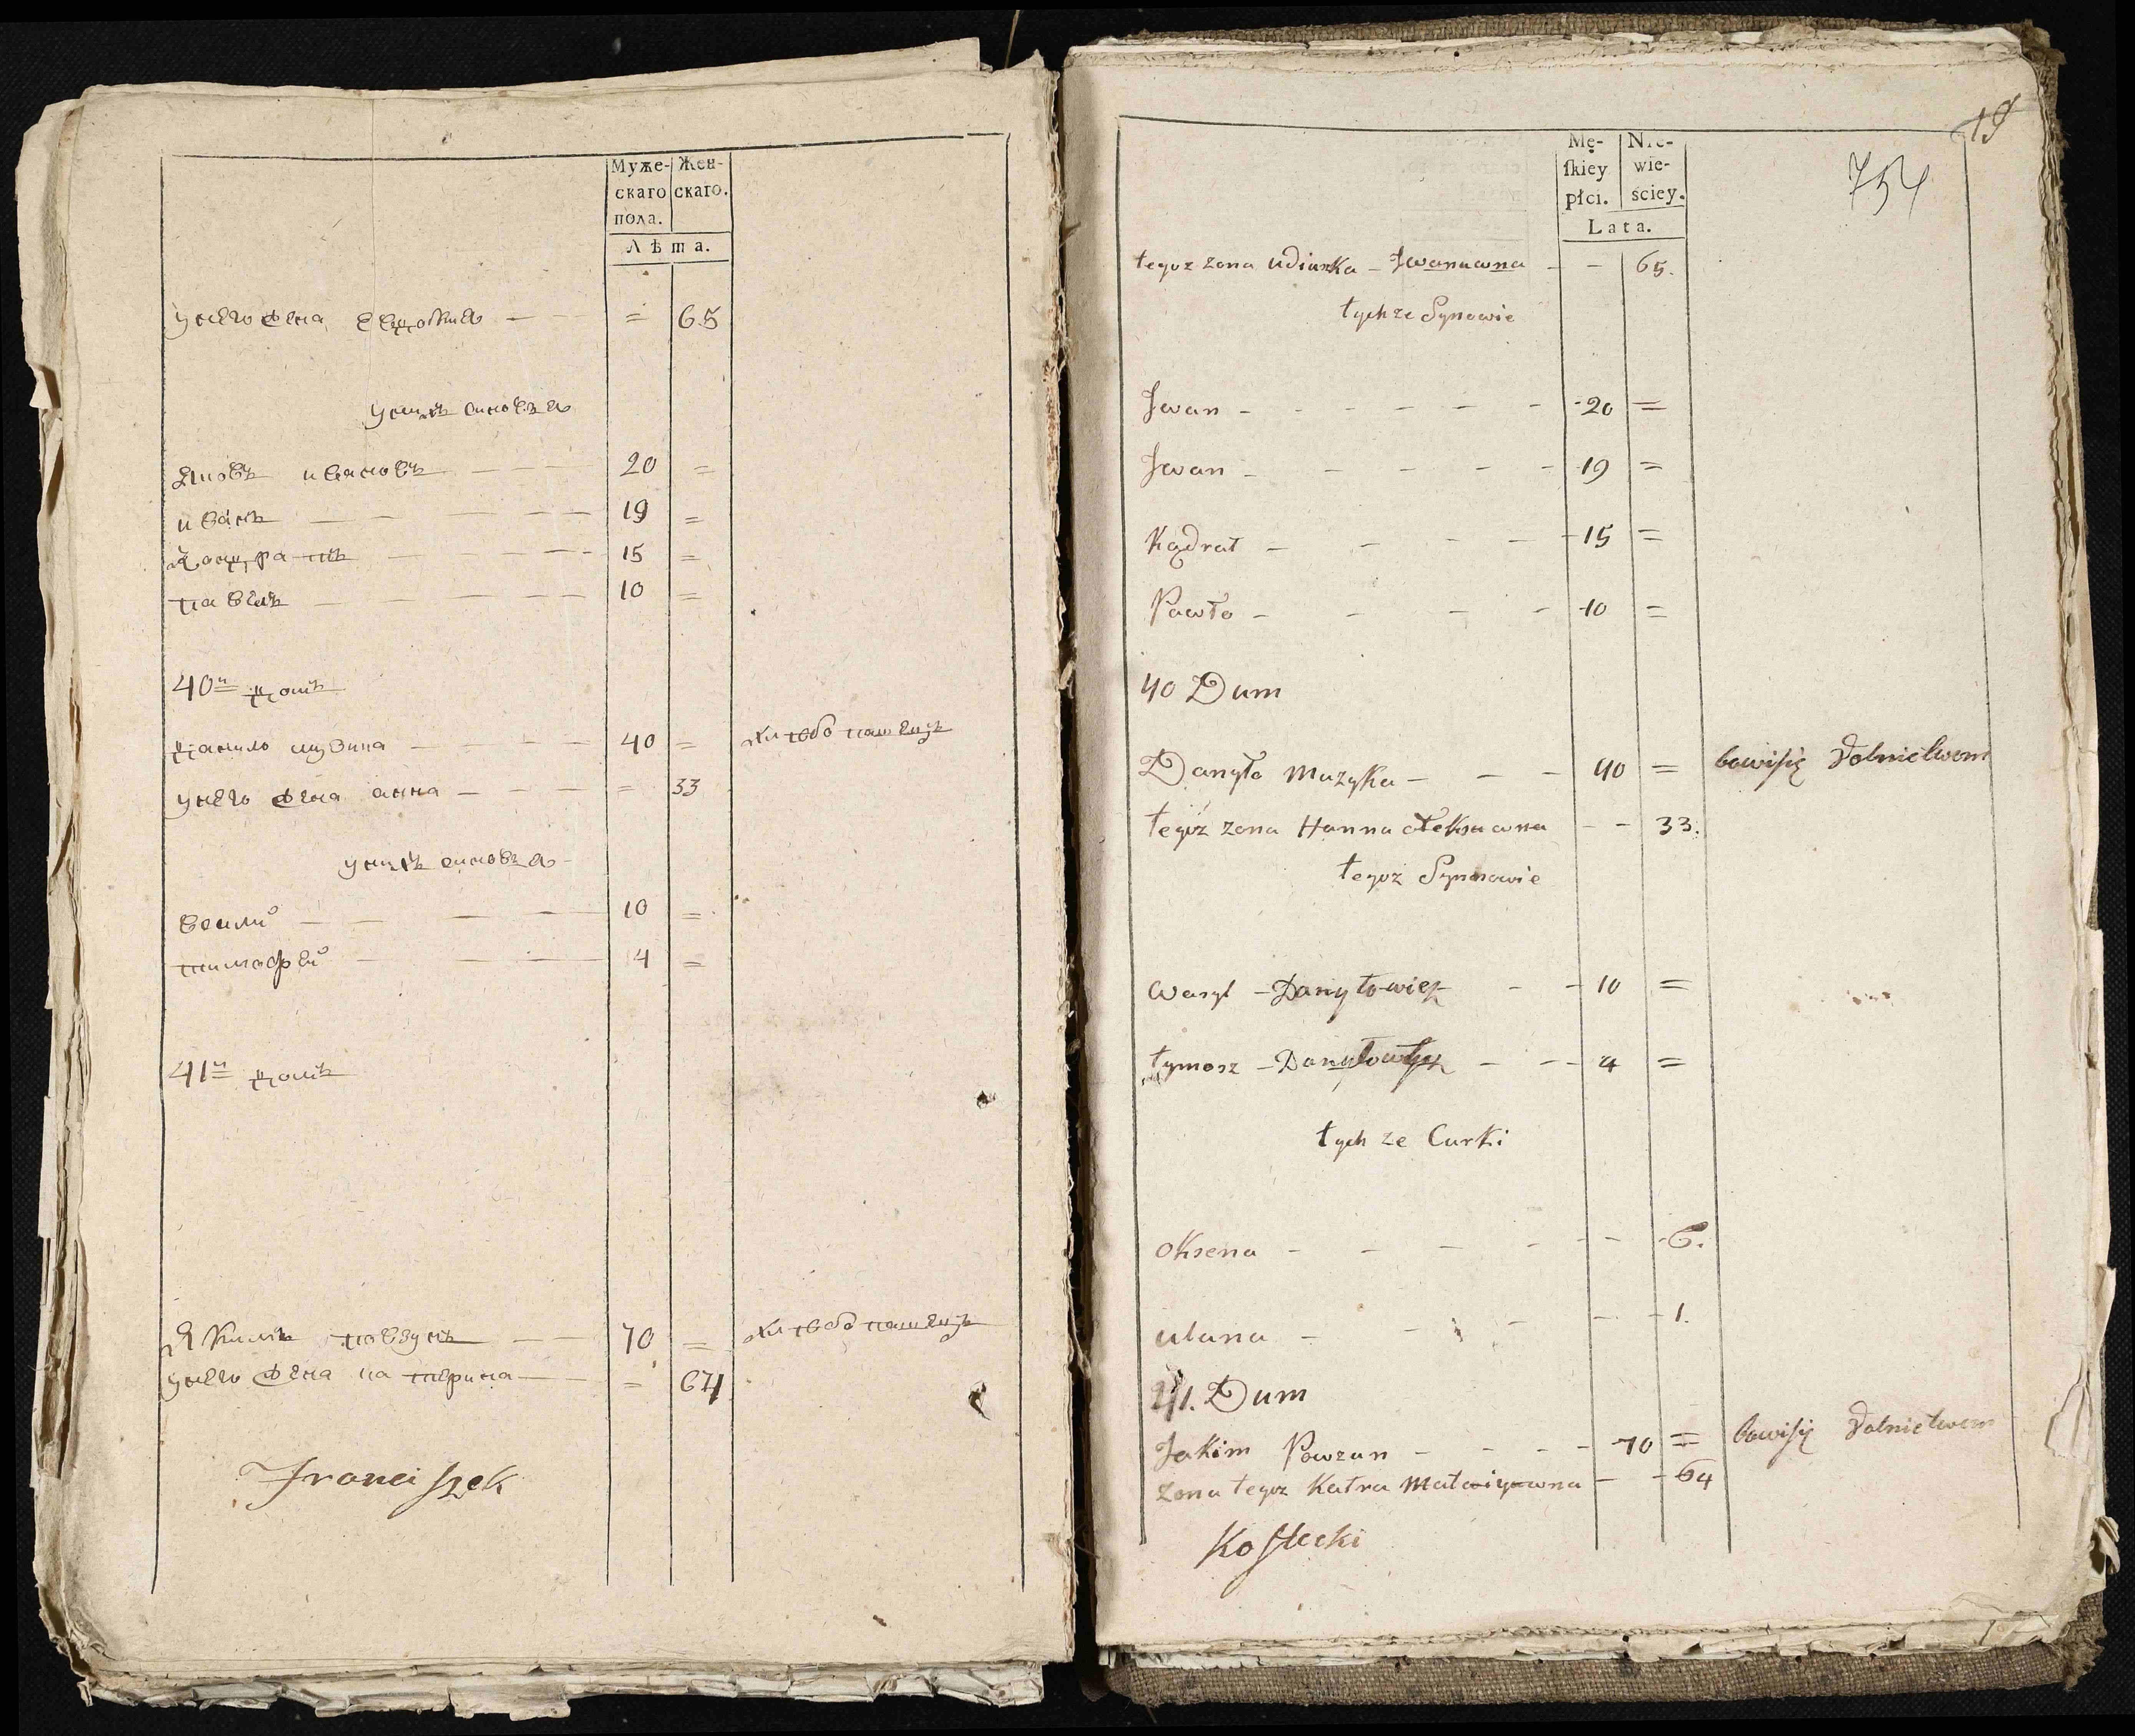 Муже- Жен-
скаго скаго.
пола.
Лѣта.
у него жена Евдокия — = 65
у нихъ синовья
Яковъ ивановъ — 20 =
иванъ — 19 =
Кондратъ — 15 =
павелъ — 10 =
40й домъ
данило музика — 40 = хлебопашецъ
у него жена анна — = 33
у нихъ синовья
василй — 10 =
тимофей — 4 =
41й домъ
Якимъ повзунъ — 70 = хлебопашецъ
у него жена катерина — = 64
Franciszek
19
Mę- Nie-
skiey wie-
płci. sciey.
Lata.
754
tegoz zona Udiuszka - Jwanuwna - - 65.
tychze Synowie
Jwan - 20 =
Jwan - 19 =
Kądrat - 15 =
Pawło - 10 =
40 Dum
Danyło Muzyka - 40 = bawisię Rolnictwem
tegoz zona Hanna ołeksuwna - - 33.
tegoz Synowie
Wasyl - Danyłowicz - 10 =
tymosz - Danyłowicz - 4 =
tychze Curki
oksena - - 6.
ulana - - 1.
41. Dum
Jakim Powzun - 70 = bawisię Rolnictwem
zona tegoz Katra Matwiyowna - - 64
Kostecki